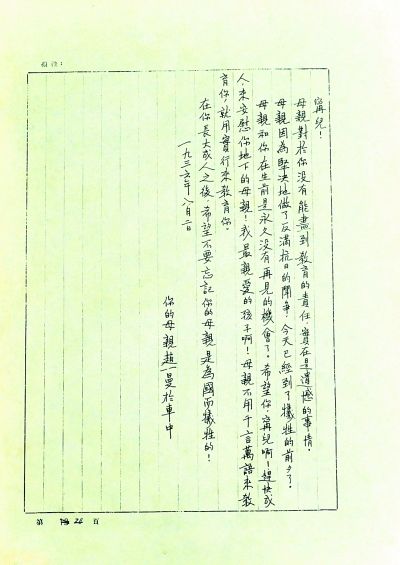 寗兒！
母親對於你沒有能盡到教育的責任，實在是遺憾的事情。
母親因為堅決地做了反滿抗日的鬥爭，今天已經到了犧牲的前夕了。
母親和你在生前是永久沒有再見的機會了。希望你，寗兒啊！趕快成
人，來安慰你地下的母親！我最親愛的孩子啊！母親不用千言萬語來教
育你，就用實行來教育你。
在你長大成人之後，希望不要忘記你的母親是為國而犧牲的！
一九三六年八月二日
你的母親趙一曼於車中